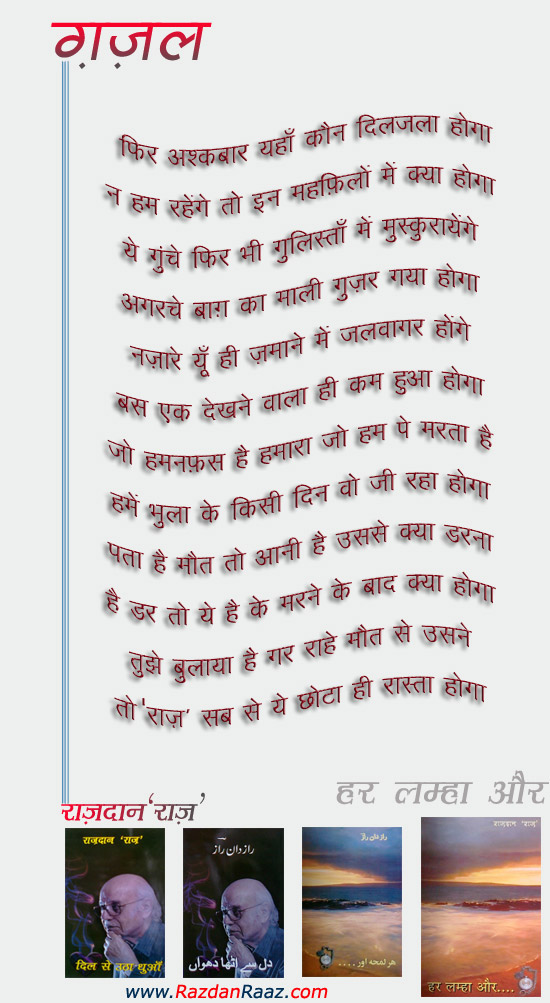 ग़ज़ल
फिर अश्कबार यहाँ कौन दिलजला होगा
न हम रहेंगे तो इन महफ़िलों में क्या होगा
ये गुंचे फिर भी गुलिस्ताँ में मुस्कुरायेंगे
अगरचे बाग़ का माली गुज़र गया होगा
नज़ारे यूँ ही ज़माने में जलवागर होंगे
बस एक देखने वाला ही कम हुआ होगा
जो हमनफ़स है हमारा जो हम पे मरता है
हमें भुला के किसी दिन वो जी रहा होगा
पता है मौत तो आनी है उससे क्या डरना
है डर तो ये है के मरने के बाद क्या होगा
तुझे बुलाया है गर राहे मौत से उसने
तो 'राज़' सब से ये छोटा ही रास्ता होगा
हर लम्हा और
राज़दान 'राज़'
राज़दान 'राज़'
दिल से उठा धुआँ
راز دان راز
دل سے اٹھا دھواں
راز دان راز
هر لمحه اور....
राज़दान 'राज़'
हर लम्हा और....
www.RazdanRaaz.com